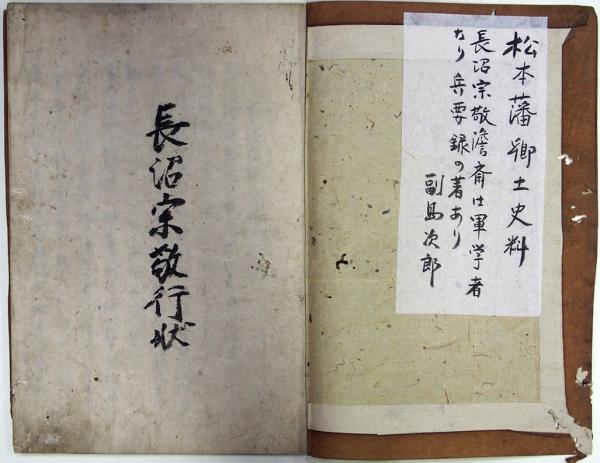 松本藩郷土史料
長沼宗敬澹斎は軍学者
なり兵要録の著あり
副島次郎
長沼宗敬行状